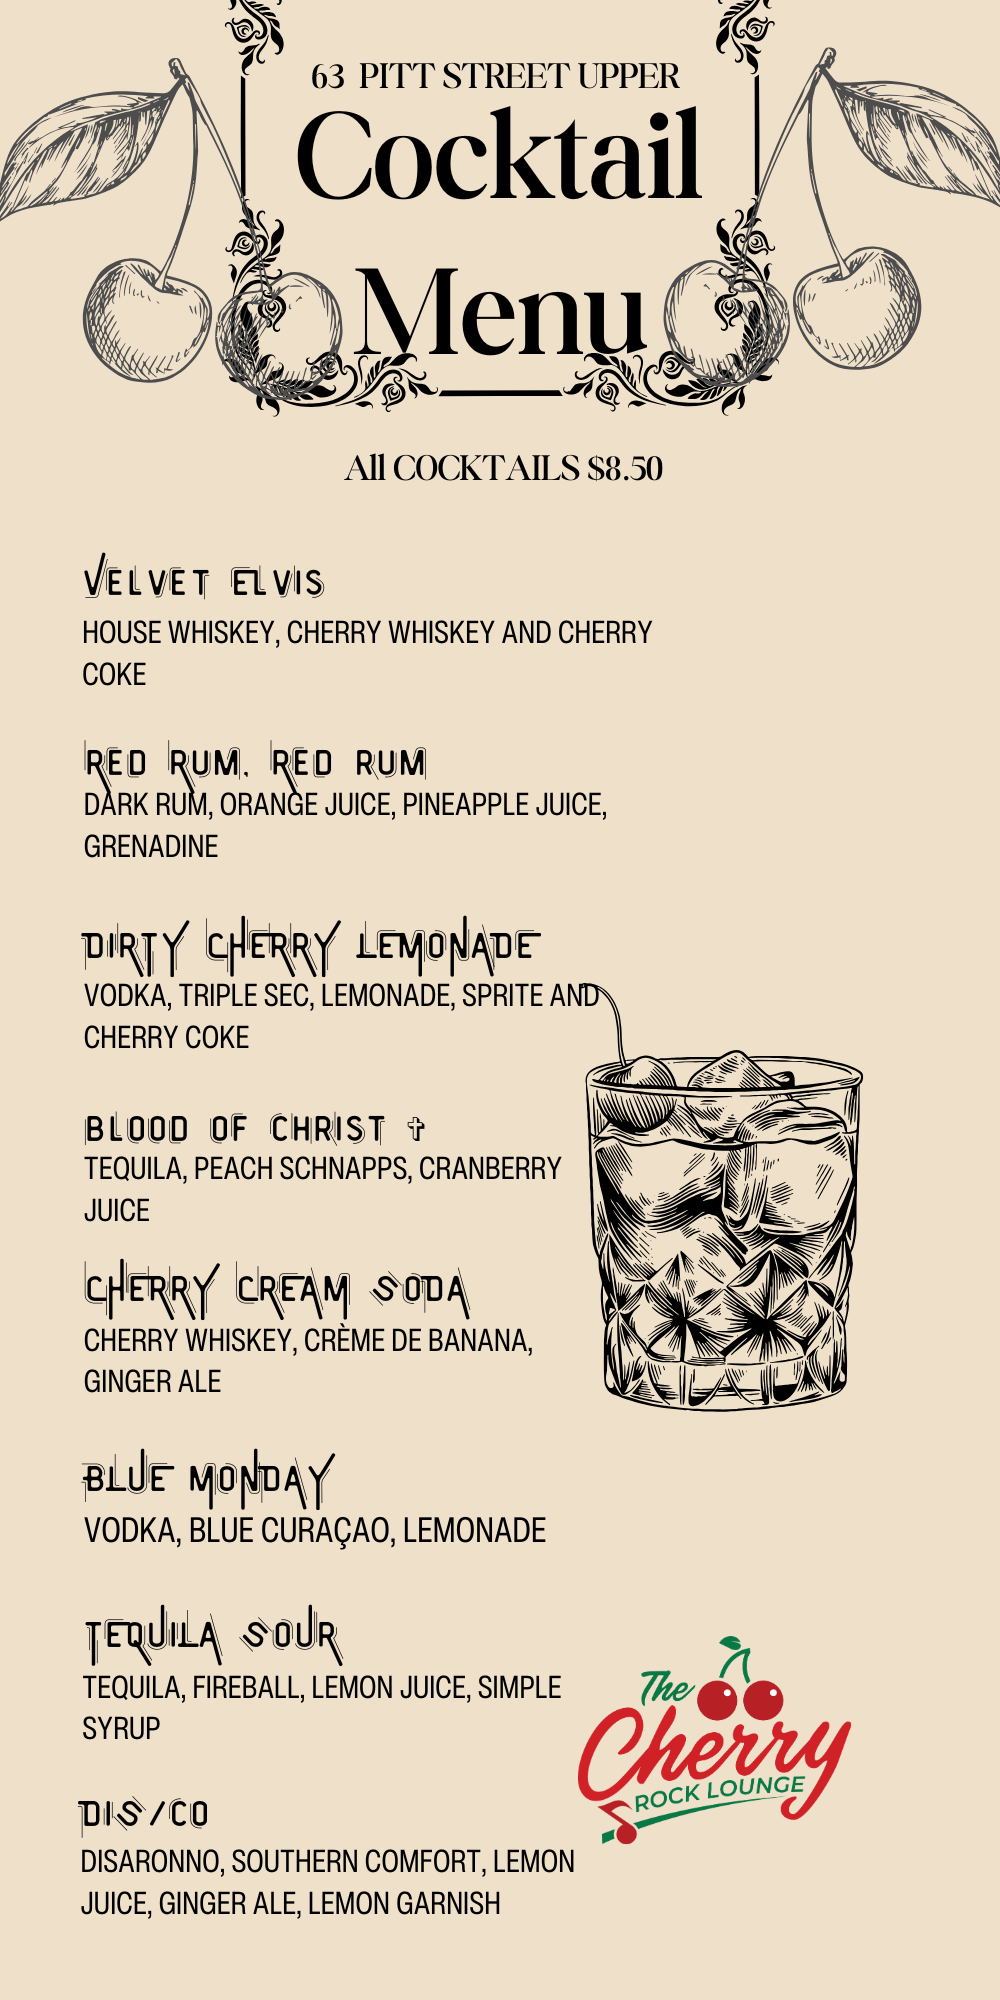 63 PITT STREET UPPER
Cocktail
Menu
All COCKTAILS $8.50
VELVET ELVIS
HOUSE WHISKEY, CHERRY WHISKEY AND CHERRY
COKE
RED RUM, RED RUM
DARK RUM, ORANGE JUICE, PINEAPPLE JUICE,
GRENADINE
DIRTY CHERRY LEMONADE
VODKA, TRIPLE SEC, LEMONADE, SPRITE AND
CHERRY COKE
BLOOD OF CHRIST ✝
TEQUILA, PEACH SCHNAPPS, CRANBERRY
JUICE
CHERRY CREAM SODA
CHERRY WHISKEY, CRÈME DE BANANA,
GINGER ALE
BLUE MONDAY
VODKA, BLUE CURAÇAO, LEMONADE
TEQUILA SOUR
TEQUILA, FIREBALL, LEMON JUICE, SIMPLE
SYRUP
The
Cherry
ROCK LOUNGE
DIS/CO
DISARONNO, SOUTHERN COMFORT, LEMON
JUICE, GINGER ALE, LEMON GARNISH